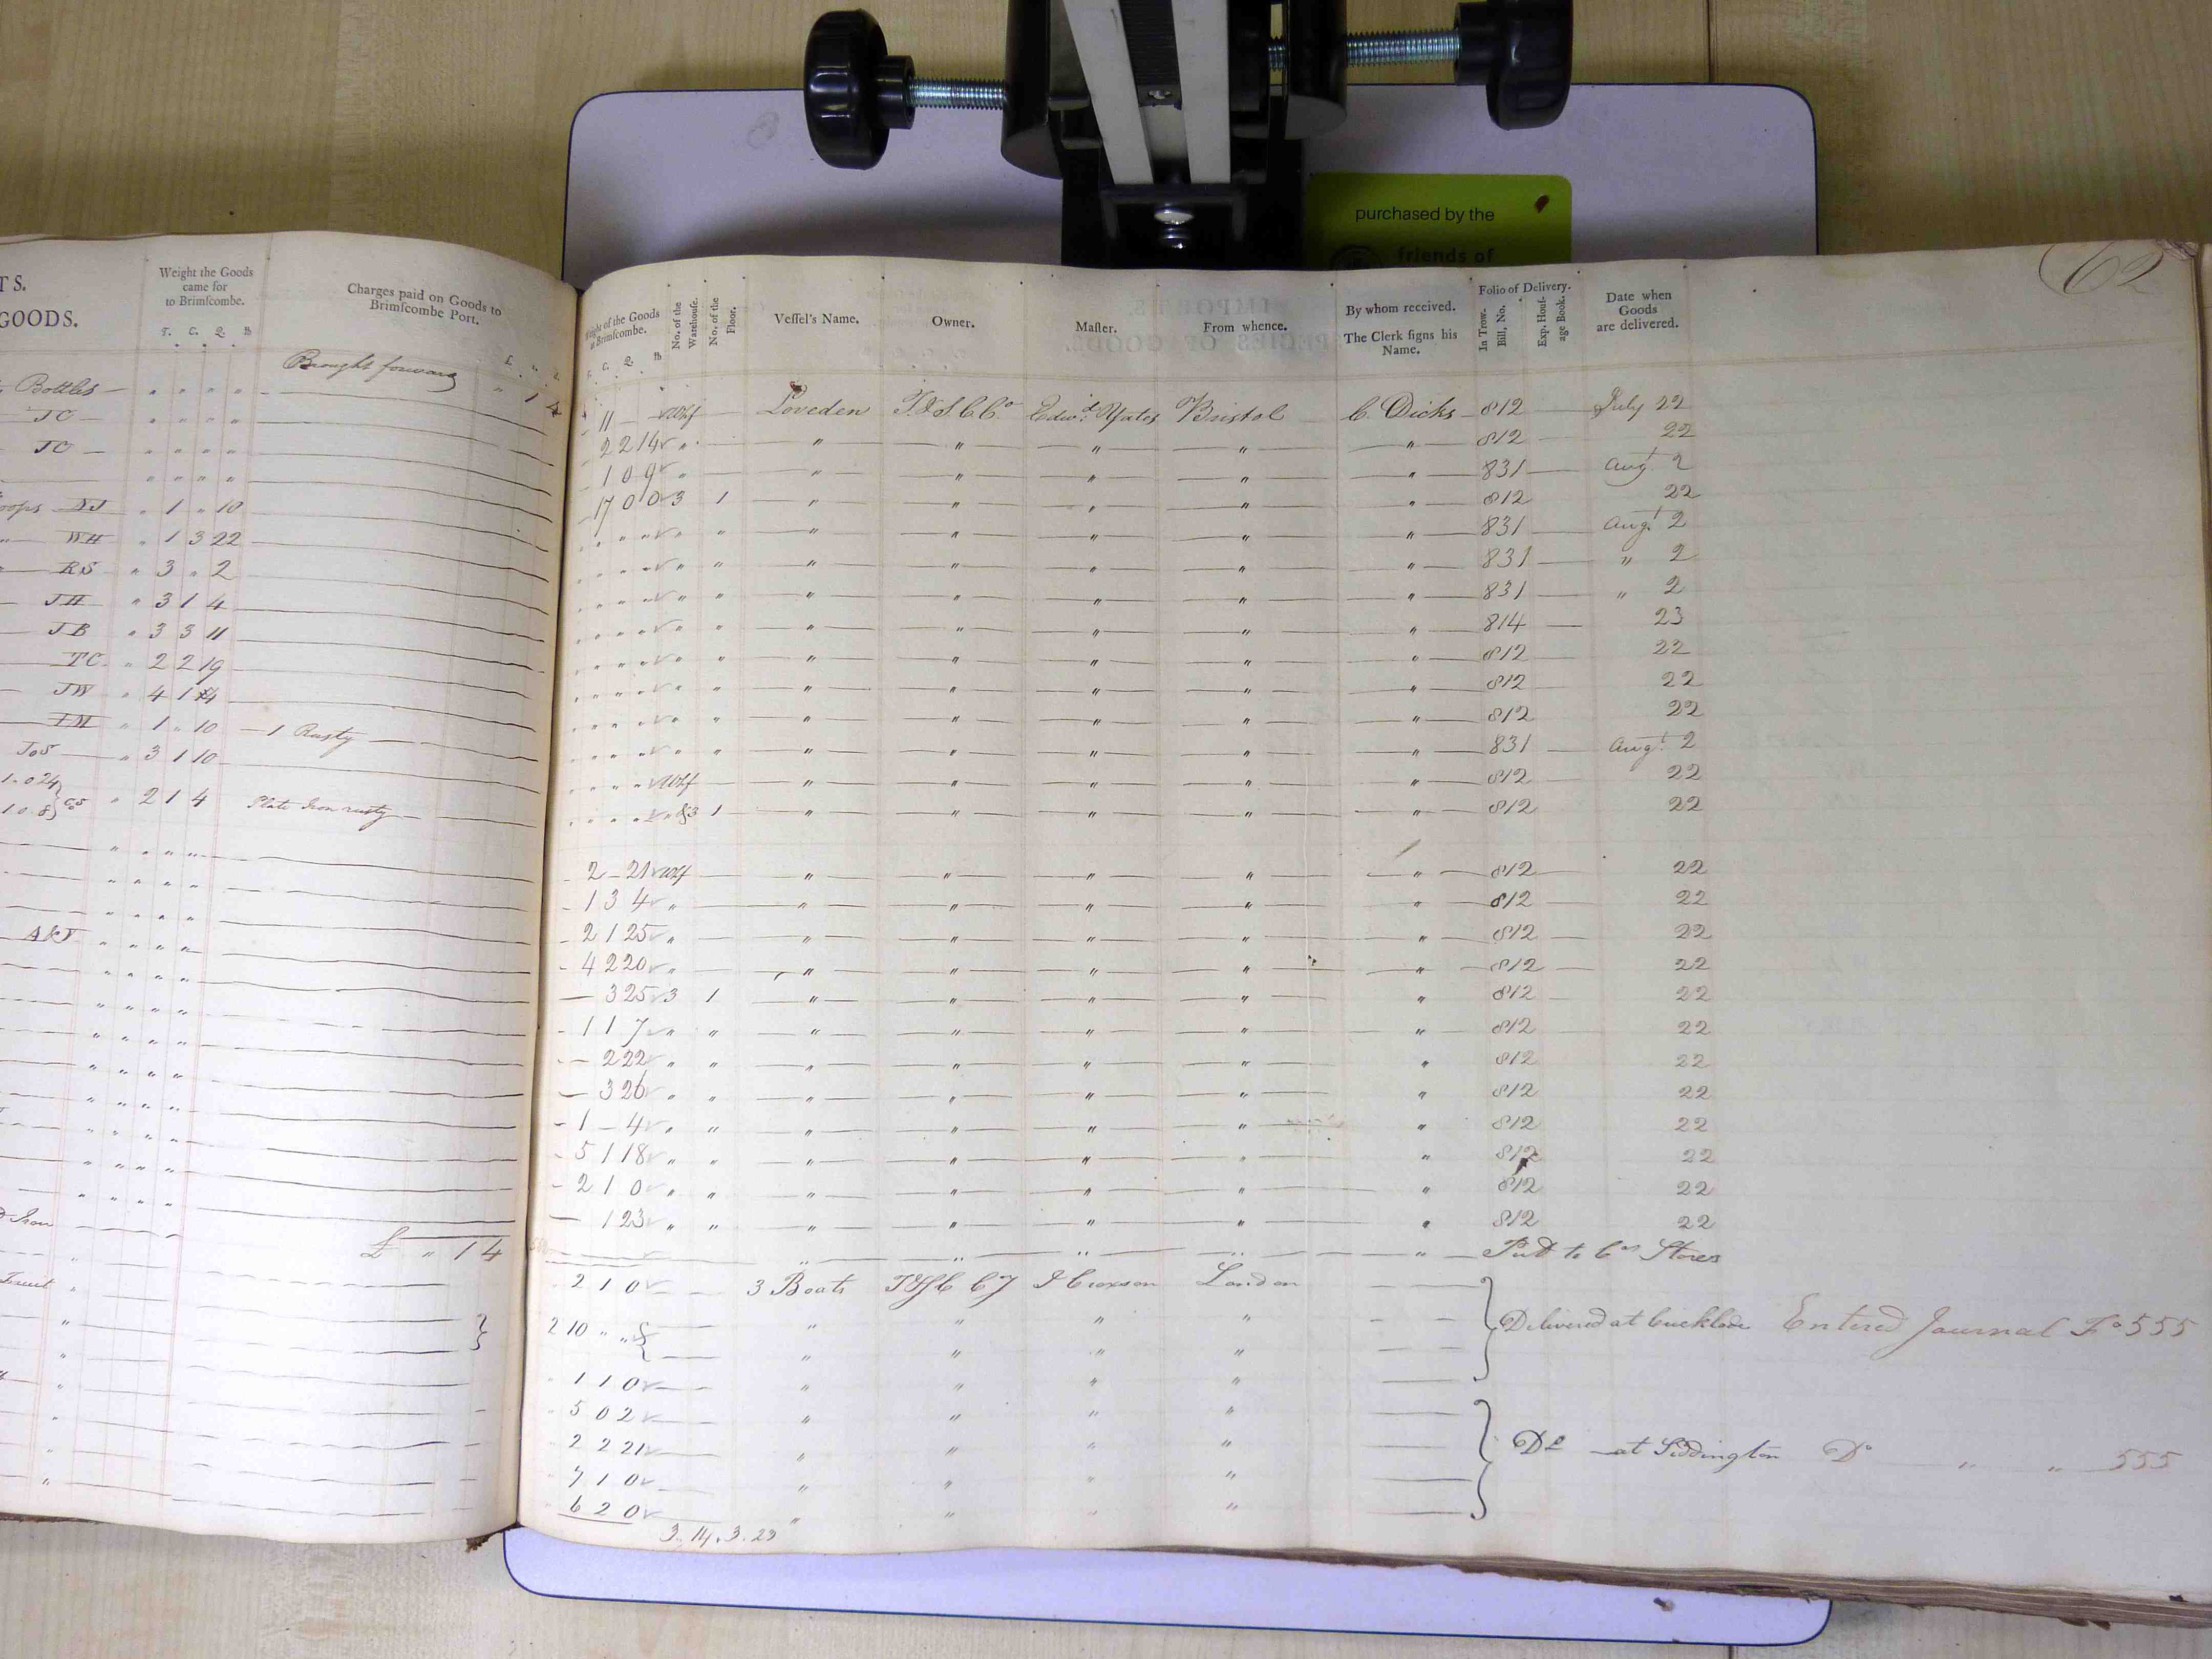 purchased by the
friends of
62
TS.
GOODS.
Weight the Goods
came for
to Brimſcombe.
T. C. Q. lb
Charges paid on Goods to
Brimſcombe Port.
Brought forward " 1 4
Bottles
JC
JC
oops DJ " 1 " 10
" WH " 1 3 22
RS " 3 " 2
JH " 3 1 4
JB " 3 3 11
TC " 2 2 19
JW " 4 1 4
" 1 " 10 1 Rusty
JoS " 3 1 10
1 " 0 24
1 0 8 " 2 1 4 Plate Iron rusty
A&J
Iron
£ " 1 4
Weight of the Goods
at Brimſcombe.
T. C. Q. lb
No. of the
Warehouſe.
No. of the
Floor.
Veſſel's Name.
Owner.
Maſter.
From whence.
By whom received.
The Clerk ſigns his
Name.
Folio of Delivery.
In Trow-
Bill, No.
Exp. Houſ-
age Book.
Date when
Goods
are delivered.
11 Whf Loveden T&SCCo Edwd. Yates Bristol C. Dicks 812 July 22
2 2 14 " " " " " " 812 22
1 0 9 " " " " " " 831 Augt 2
17 0 0 3 1 " " " " " 812 22
" " " " " " " " " " " 831 Augt 2
" " " " " " " " " " " 831 " 2
" " " " " " " " " " " 831 " 2
" " " " " " " " " " " 814 23
" " " " " " " " " " " 812 22
" " " " " " " " " " " 812 22
" " " " " " " " " " " 812 22
" " " " " " " " " " " 831 Augt 2
" " " " Whf " " " " " 812 22
" " " " " &3 1 " " " " " 812 22
2 – 21 Whf " " " " " 812 22
1 3 4 " " " " " " 812 22
2 1 25 " " " " " " 812 22
4 2 20 " " " " " " 812 22
– 3 25 3 1 " " " " " 812 22
1 1 7 " " " " " " " 812 22
– 2 22 " " " " " " " 812 22
– 3 26 " " " " " " " 812 22
1 – 4 " " " " " " " 812 22
5 1 18 " " " " " " " 812 22
2 1 0 " " " " " " " 812 22
– 1 23 " " " " " " " 812 22
" " " Put to Cos Stores
2 1 0 3 Boats J Croxson London
2 10 " " " " " " Delivered at Cricklade Entered Journal Fo 555
" " " "
1 1 0 " " " "
5 0 2 " " " "
2 2 21 " " " " Do at Siddington Do " " 555
7 1 0 " " " "
6 2 0 " " " "
3. 14. 3. 23